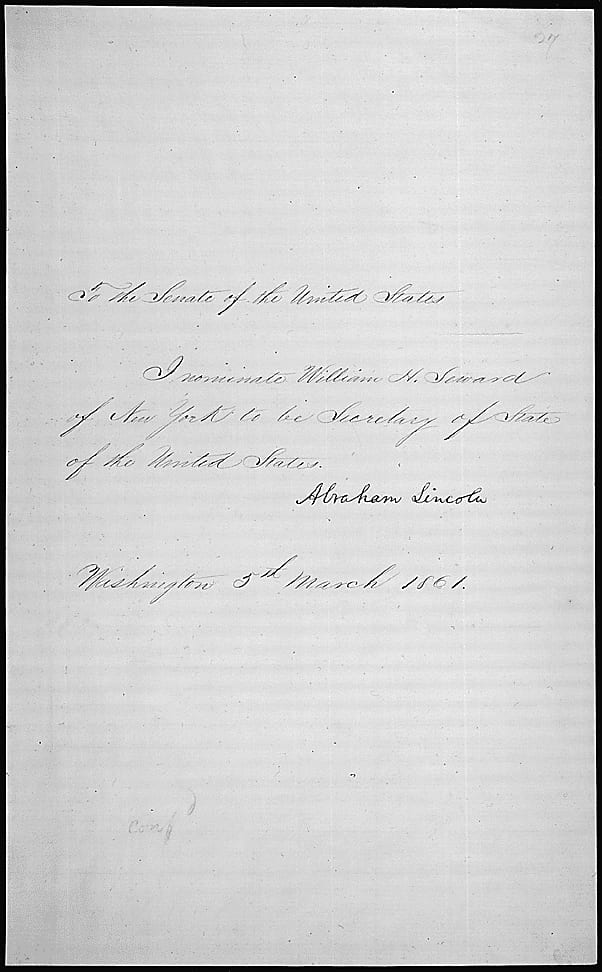 27
To the Senate of the United States
I nominate William H. Seward
of New York to be Secretary of State
of the United States.
Abraham Lincoln
Washington 5th March 1861.